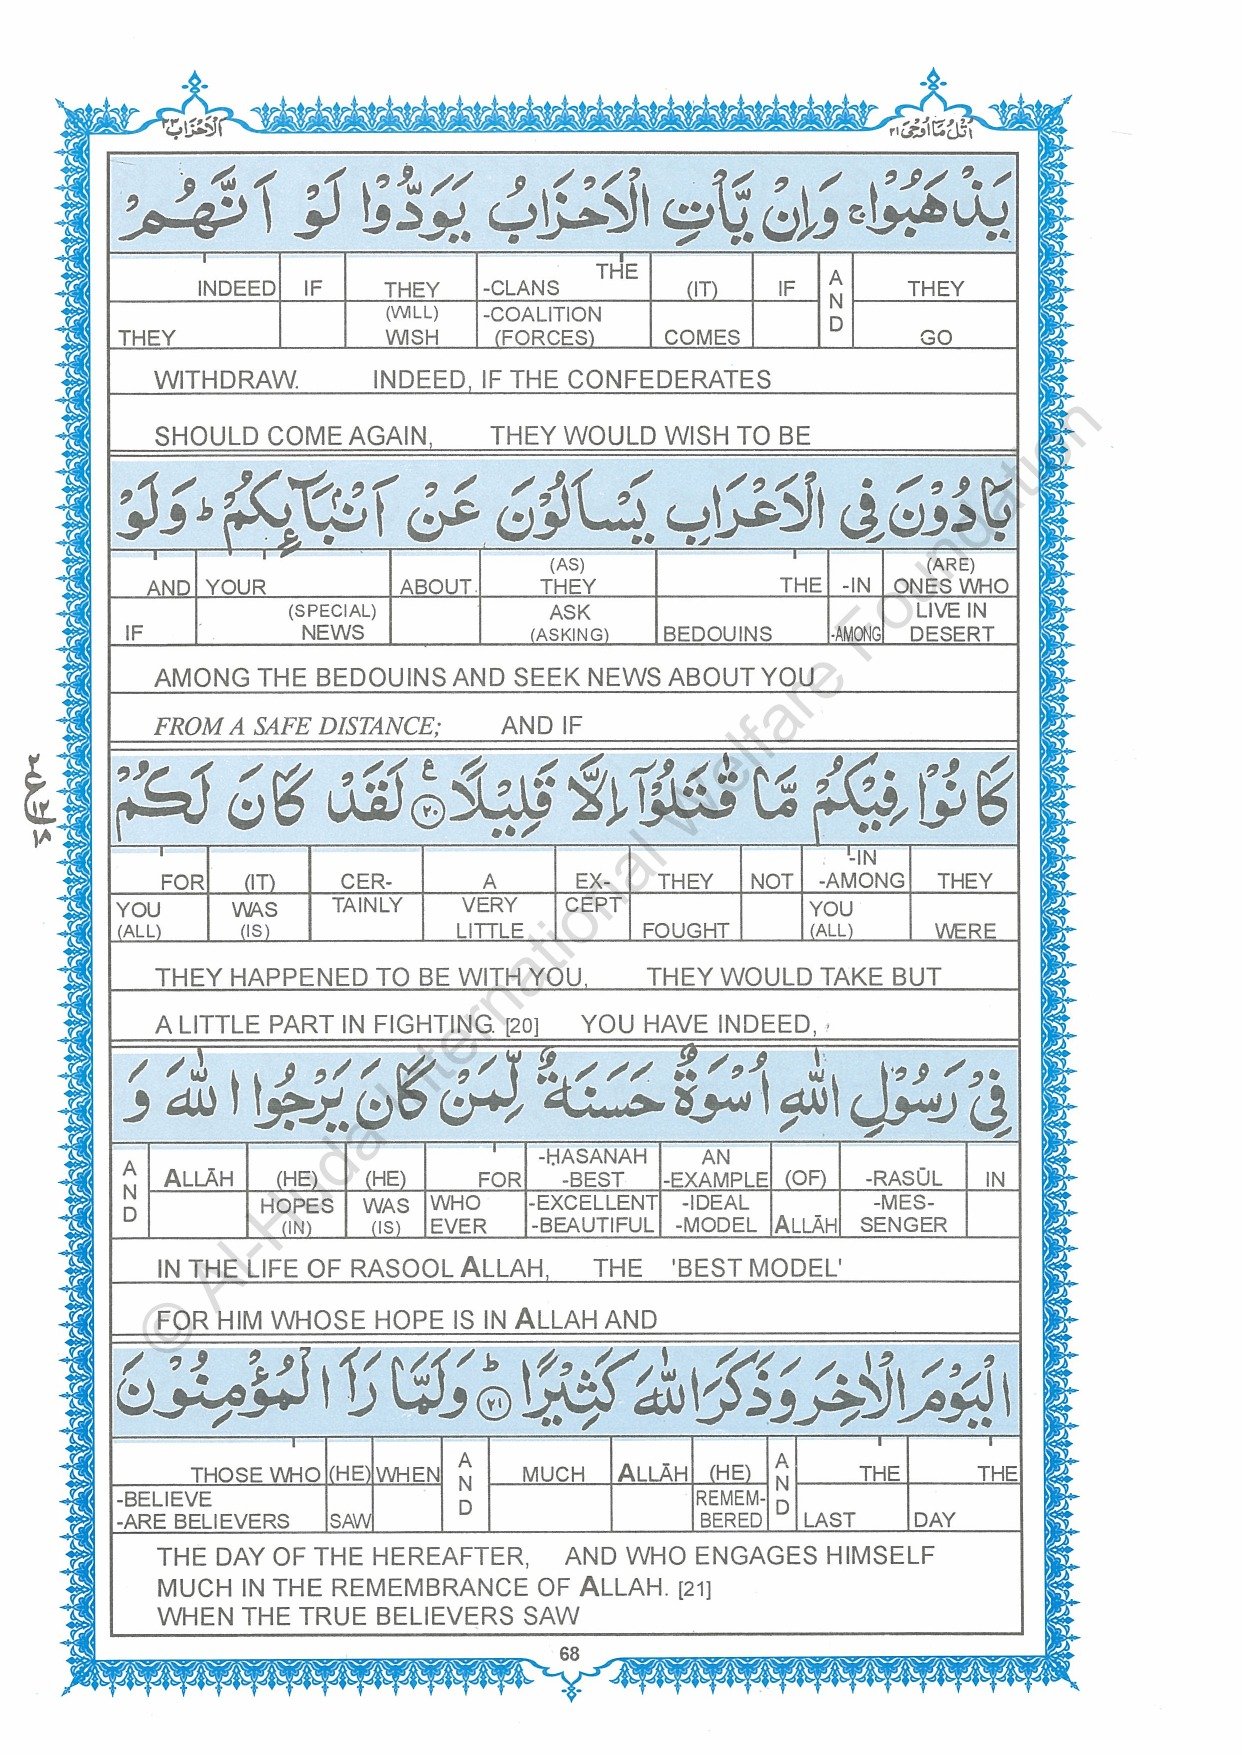 اُتْلُ مَا اُوْحِىَ ٢١
اَلْاَحْزَابُ ٣٣
يَذْهَبُوْا ۚ وَاِنْ يَّاْتِ الْاَحْزَابُ يَوَدُّوْا لَوْ اَنَّهُمْ
INDEED IF THEY -CLANS THE (IT) IF AND THEY
THEY (WILL) WISH -COALITION (FORCES) COMES GO
WITHDRAW. INDEED, IF THE CONFEDERATES
SHOULD COME AGAIN, THEY WOULD WISH TO BE
بَادُوْنَ فِى الْاَعْرَابِ يَسْاَلُوْنَ عَنْ اَنْۢبَآئِكُمْ ؕ وَلَوْ
AND YOUR ABOUT (AS) THEY THE -IN (ARE) ONES WHO
IF (SPECIAL) NEWS ASK (ASKING) BEDOUINS -AMONG LIVE IN DESERT
AMONG THE BEDOUINS AND SEEK NEWS ABOUT YOU
FROM A SAFE DISTANCE; AND IF
كَانُوْا فِيْكُمْ مَّا قٰتَلُوْۤا اِلَّا قَلِيْلًا ۧ ٢٠ لَقَدْ كَانَ لَكُمْ
FOR (IT) CER- A EX- THEY NOT -IN -AMONG THEY
YOU (ALL) WAS (IS) TAINLY VERY LITTLE CEPT FOUGHT YOU (ALL) WERE
THEY HAPPENED TO BE WITH YOU, THEY WOULD TAKE BUT
A LITTLE PART IN FIGHTING. [20] YOU HAVE INDEED,
فِىْ رَسُوْلِ اللّٰهِ اُسْوَةٌ حَسَنَةٌ لِّمَنْ كَانَ يَرْجُوا اللّٰهَ وَ
AND ALLĀH (HE) (HE) FOR -ḤASANAH -BEST AN -EXAMPLE (OF) -RASŪL IN
HOPES (IN) WAS (IS) WHO EVER -EXCELLENT -BEAUTIFUL -IDEAL -MODEL ALLĀH -MES- SENGER
IN THE LIFE OF RASOOL ALLAH, THE 'BEST MODEL'
FOR HIM WHOSE HOPE IS IN ALLAH AND
الْيَوْمَ الْاٰخِرَ وَذَكَرَ اللّٰهَ كَثِيْرًا ؕ ٢١ وَلَمَّا رَاَ الْمُؤْمِنُوْنَ
THOSE WHO (HE) WHEN AND MUCH ALLĀH (HE) AND THE THE
-BELIEVE -ARE BELIEVERS SAW REMEM- BERED LAST DAY
THE DAY OF THE HEREAFTER, AND WHO ENGAGES HIMSELF
MUCH IN THE REMEMBRANCE OF ALLAH. [21]
WHEN THE TRUE BELIEVERS SAW
68
© Al-Huda International Welfare Foundation